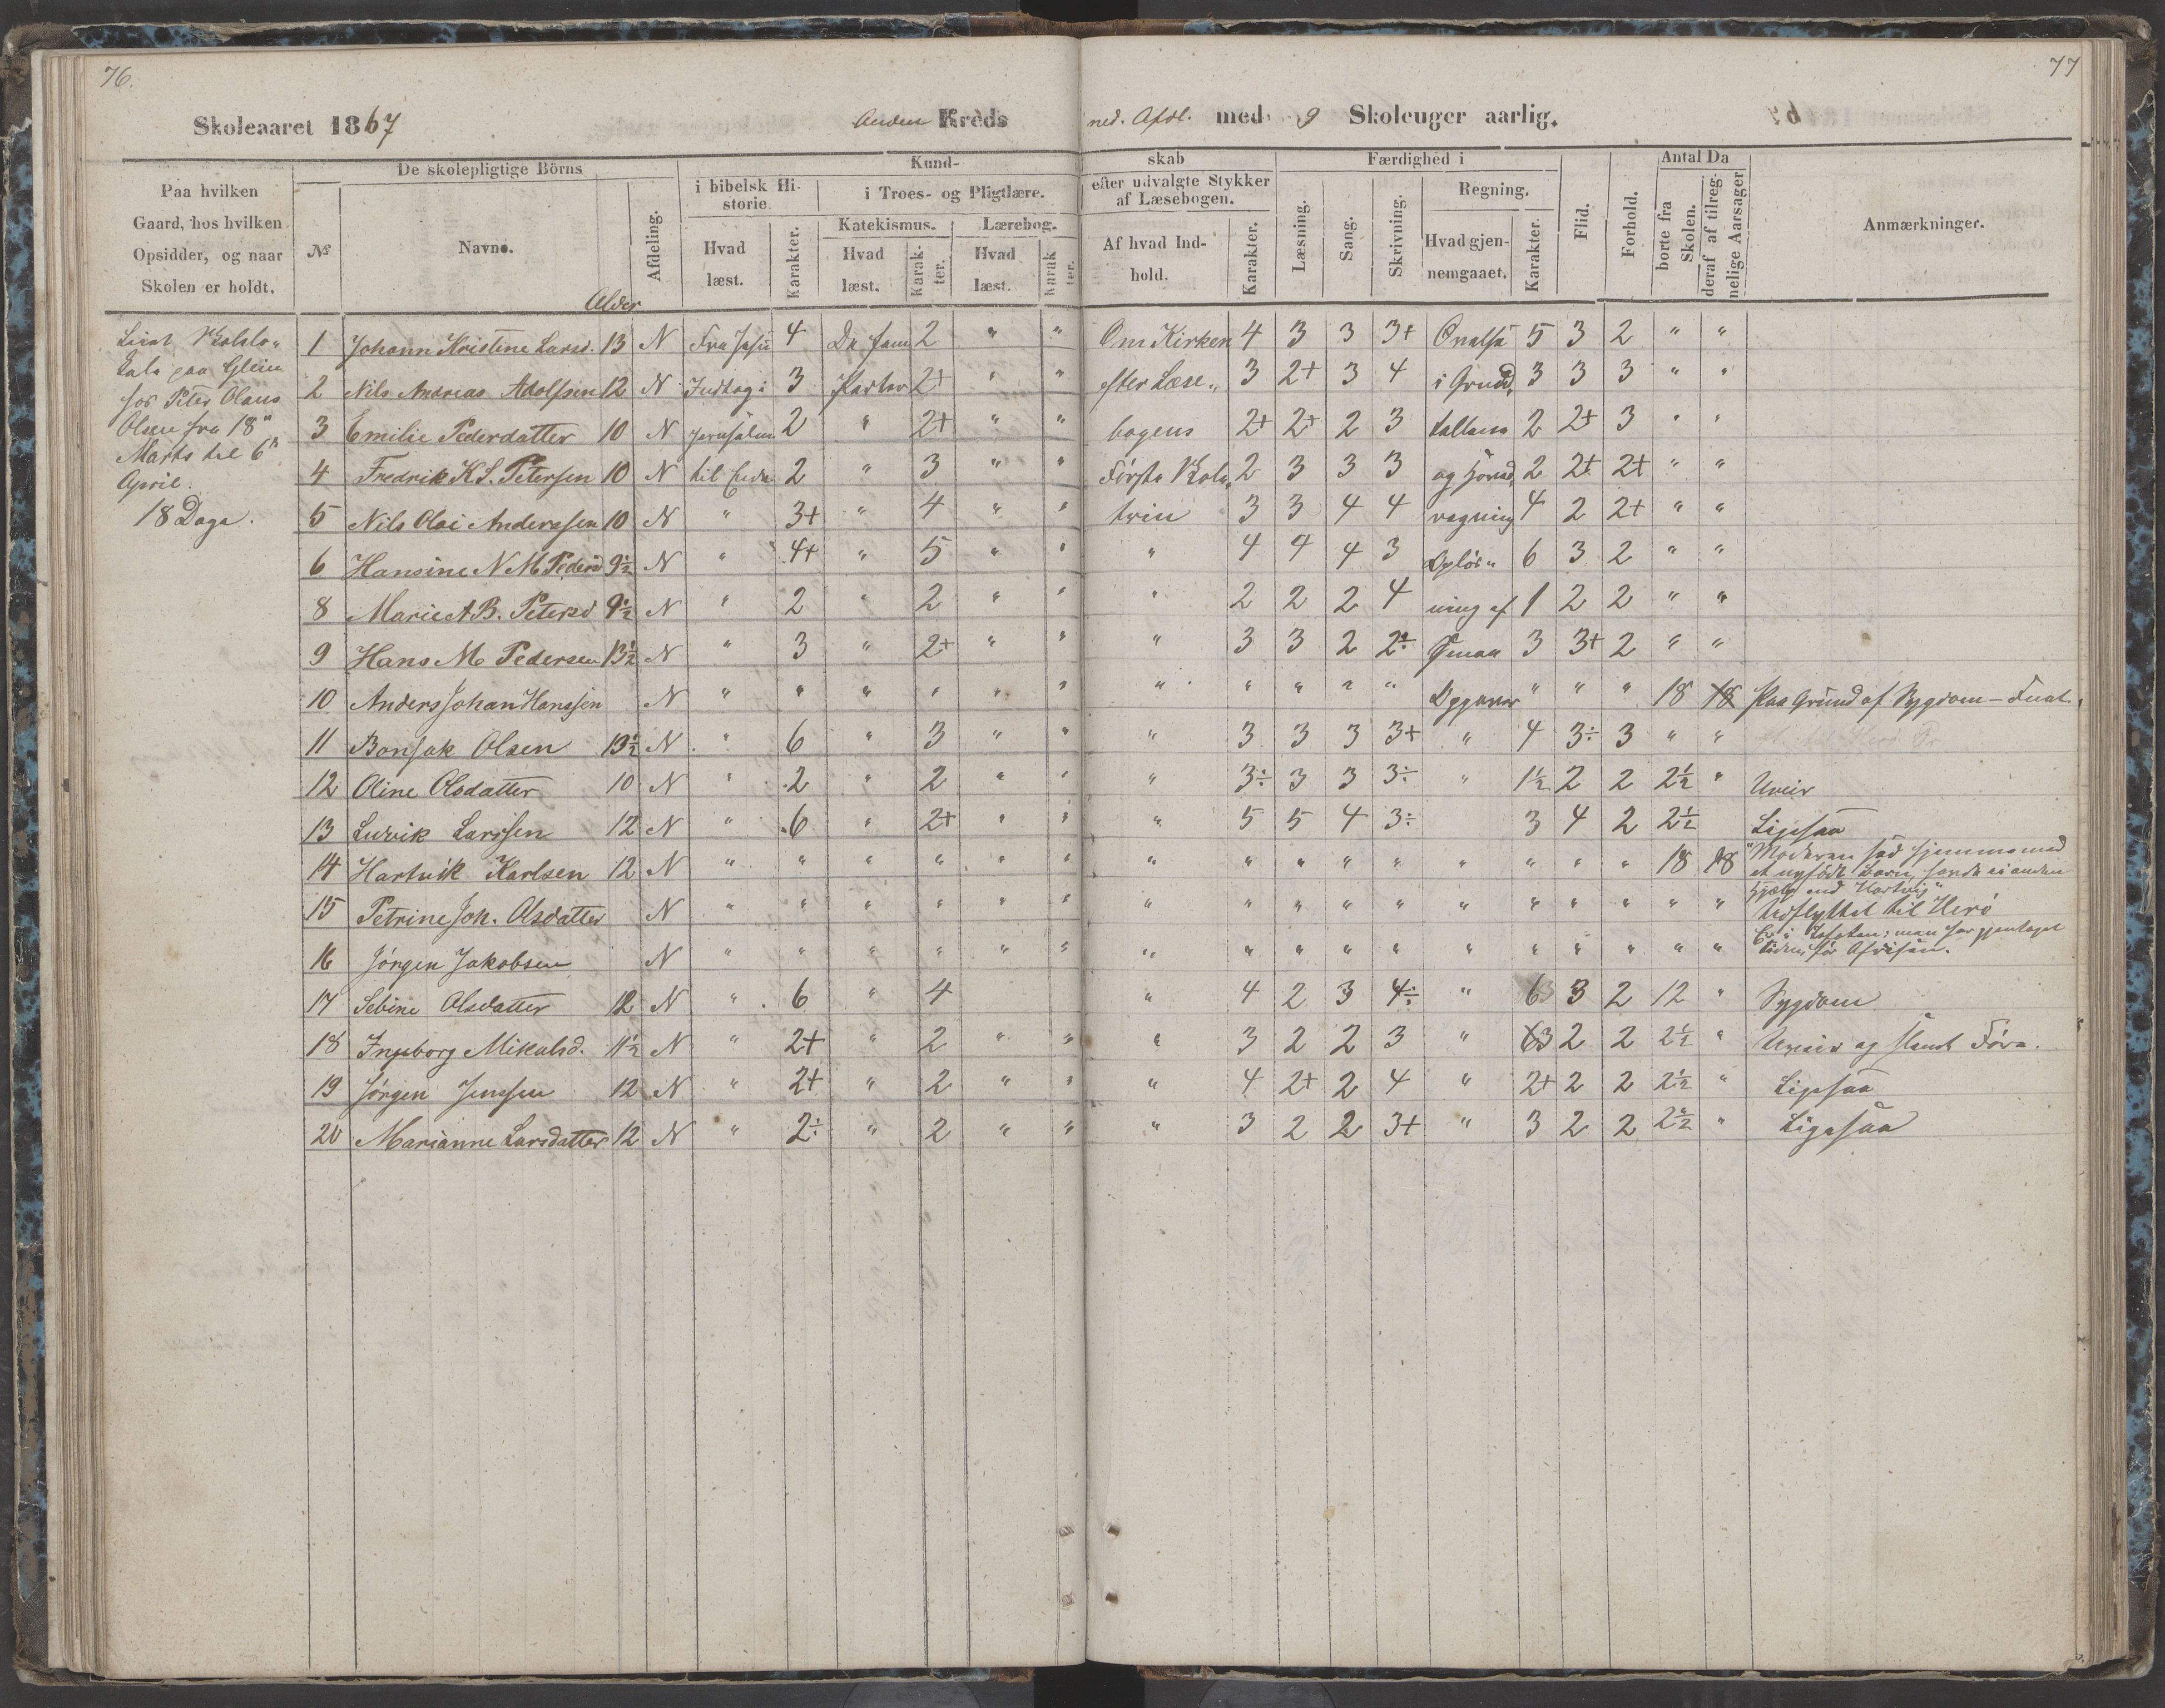 76.
77
Skoleaaret 1867
Anden Kreds
ned. Afdl. med 9 Skoleuger aarlig.
Paa hvilken
Gaard, hos hvilken
Opsidder, og naar
Skolen er holdt.
De skolepligtige Börns
No
Navne.
Alder
Afdeling.
Kund-
i bibelsk Hi-
storie
Hvad
læst.
Karakter.
i Troes- og Pligtlære.
Katekismus.
Hvad
læst.
Karak-
ter.
Lærebog.
Hvad
læst.
Karak
ter.
skab
efter udvalgte Stykker
af Læsebogen.
Af hvad Ind-
hold.
Karakter.
Færdighed i
Læsning.
Sang.
Skrivning.
Regning.
Hvad gjen-
nemgaaet.
Karakter.
Flid.
Forhold.
Antal Da
borte fra
Skolen.
deraf af tilreg-
nelige Aarsager
Anmærkninger.
paa Glein
hos Peter Olaus
Olsen fra 18"
Marts til 6"
April.
18 Dage.
1 Johann Kristine Larsd. 13 N Fra Jesu 4 2 " " Om Kirken 4 3 3 3+ 5 3 2 " "
2 Nils Andreas Adolfsen 12 N Indtog i 3 2+ " " efter Læse„ 3 2+ 3 4 i Grund„ 3 3 3 " "
3 Emilie Pedersdatter 10 N Jerusalem 2 " 2+ " " bogens 2+ 2+ 2 3 tallene 2 2+ 3 " "
4 Fredrik K S. Petersen 10 N til Ende 2 " 3 " " Første Skole„ 2 3 3 3 og Hoved„ 2 2+ 2+ " "
5 Nils Olai Anderssen 10 N " 3+ " 4 " " trin 3 3 4 4 regning 4 2 2+ " "
6 Hansine N M Pedersd 9½ N " 4+ " 5 " " " 4 4 4 3 Opløs„ 6 3 2 " "
8 Marie A B. Petersd 9½ N " 2 " 2 " " " 2 2 2 4 ning af 1 2 2 " "
9 Hans M Pedersen 13½ N " 3 " 2+ " " " 3 3 2 2÷ smaa 3 3+ 2 " "
10 Anders Johan Hanssen N " " " " " " " " " " " Opgaver " " " 18 18 Paa Grund af Sygdom -
11 Bonsak Olsen 13½ N " 6 " 3 " " " 3 3 3 3+ " 4 3÷ 3 " "
12 Oline Olsdatter 10 N " 2 " 2 " " " 3÷ 3 3 3÷ " 1½ 2 2 2½ " Uveir
13 Ludvik Larssen 12 N " 6 " 2+ " " " 5 5 4 3÷ 3 4 2 2½ Ligesaa
14 Hartvik Karlsen 12 N " " " " " " " " " " " " " " " 18 18 "Moderen sad hjemme med
et nyfødt Barn, havde ei anden
Hjælp end Hartvig"
15 Petrine Joh. Olsdatter N " " " " " " " " " " " " " " " " " Udflyttet til Herø
16 Jørgen Jakobsen N " " " " " " " " " " " " " " " " " Er i Lofoten;
17 Sebine Olsdatter 12 N " 6 " 4 " 4 2 3 4÷ " 6 3 2 12 " Sygdom
18 Ingeborg Mikalsd. 11½ N " 2+ " 2 " " " 3 2 2 3 " 3 2 2 2½ " Uveir og slemt Føre.
19 Jørgen Jenssen 12 N " 2+ " 2 " " " 4 2+ 2 4 " 2+ 2 2 2½ " Ligesaa
20 Marianne Larsdatter 12 N " 2÷ " 2 " " " 3 2 2 3+ " 3 2 2 2½ " Ligesaa